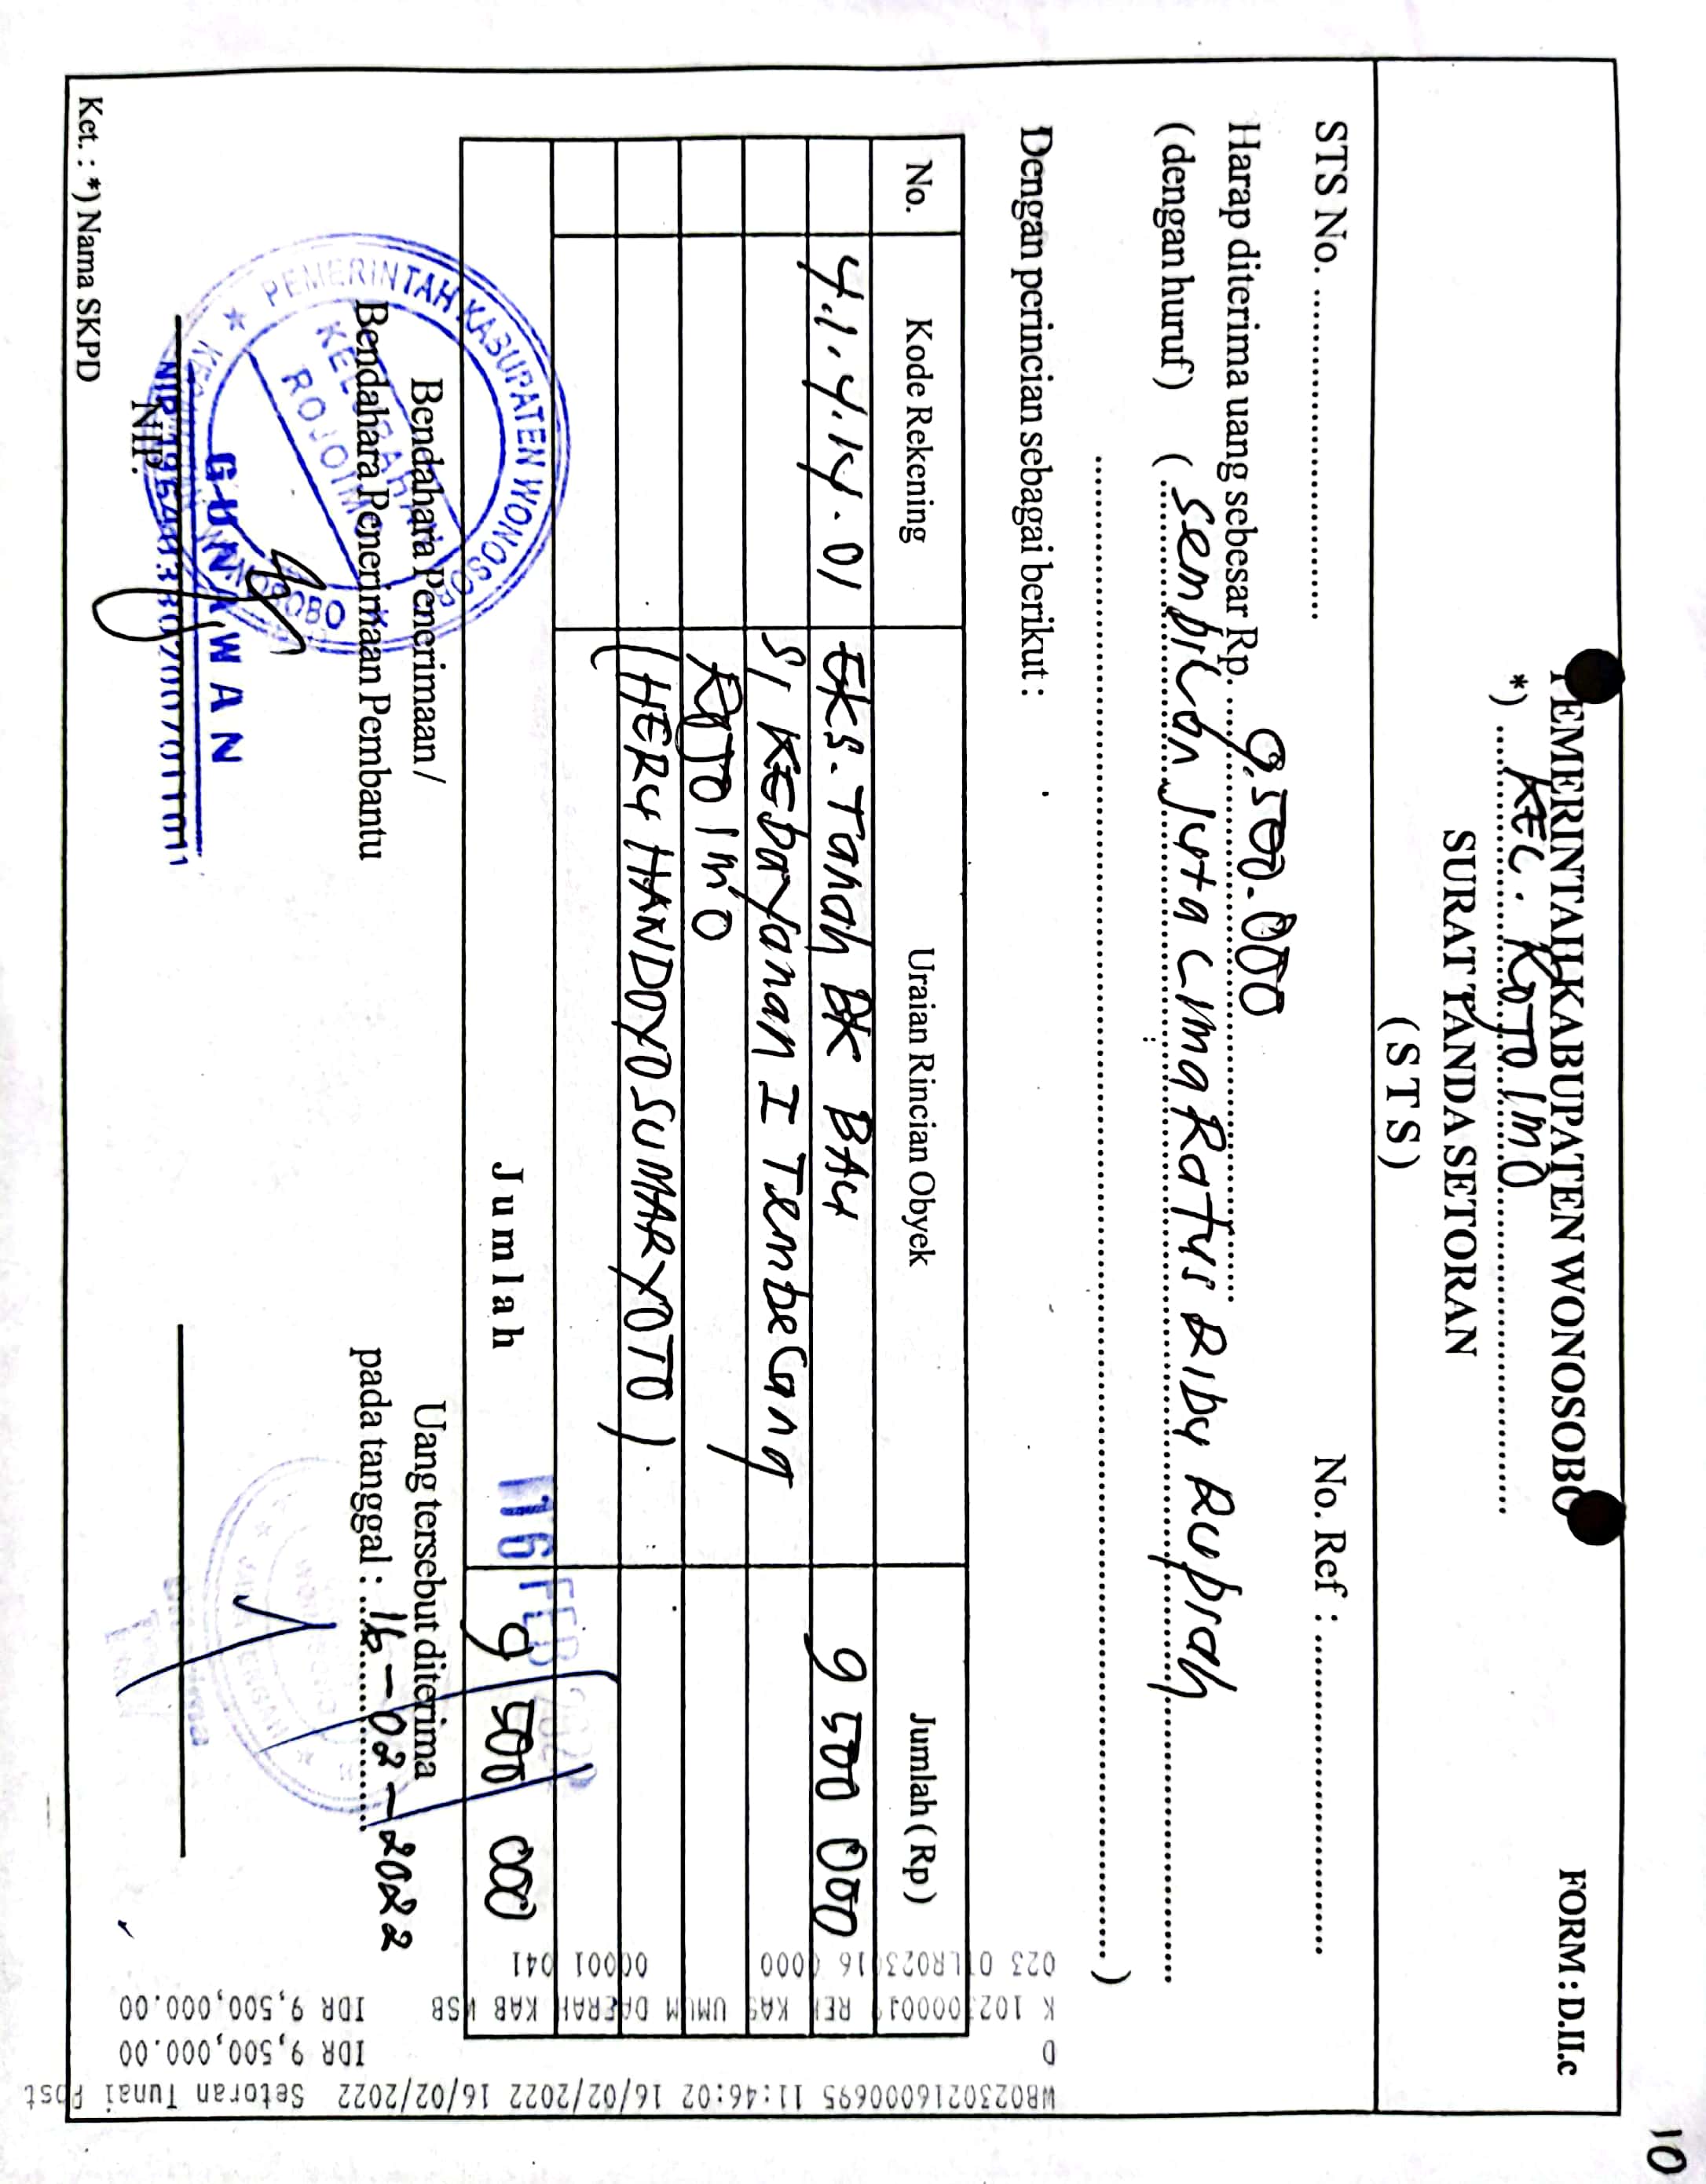 10
FORM : D.II.c
PEMERINTAH KABUPATEN WONOSOBO
*) KEL. ROJOIMO
SURAT TANDA SETORAN
( S T S )
STS No. ........ No. Ref : ........
Harap diterima uang sebesar Rp. 9.500.000
(dengan huruf) ( Sembilan Juta Lima Ratus Ribu Rupiah
)
Dengan perincian sebagai berikut :
No. Kode Rekening Uraian Rincian Obyek Jumlah ( Rp )
4.1.4.14.01 EKS. Tanah BK BAU 9 500 000
S/ Kebayanan I Tembelang
ROJOIMO
(HERY HANDOYO SUMARYOTO)
Jumlah 9 500 000
16 FEB 2022
Bendahara Penerimaan /
Bendahara Penerimaan Pembantu
Uang tersebut diterima
pada tanggal : 16-02-2022
PEMERINTAH KABUPATEN WONOSOBO
KELURAHAN
ROJOIMO
GUNAWAN
NIP.
Ket. : *) Nama SKPD
WB023021600695 11:46:02 16/02/2022 16/02/2022 Setoran Tunai Post
D IDR 9,500,000.00
REK KAS UMUM DAERAH KAB WSB IDR 9,500,000.00
0000 00001 041